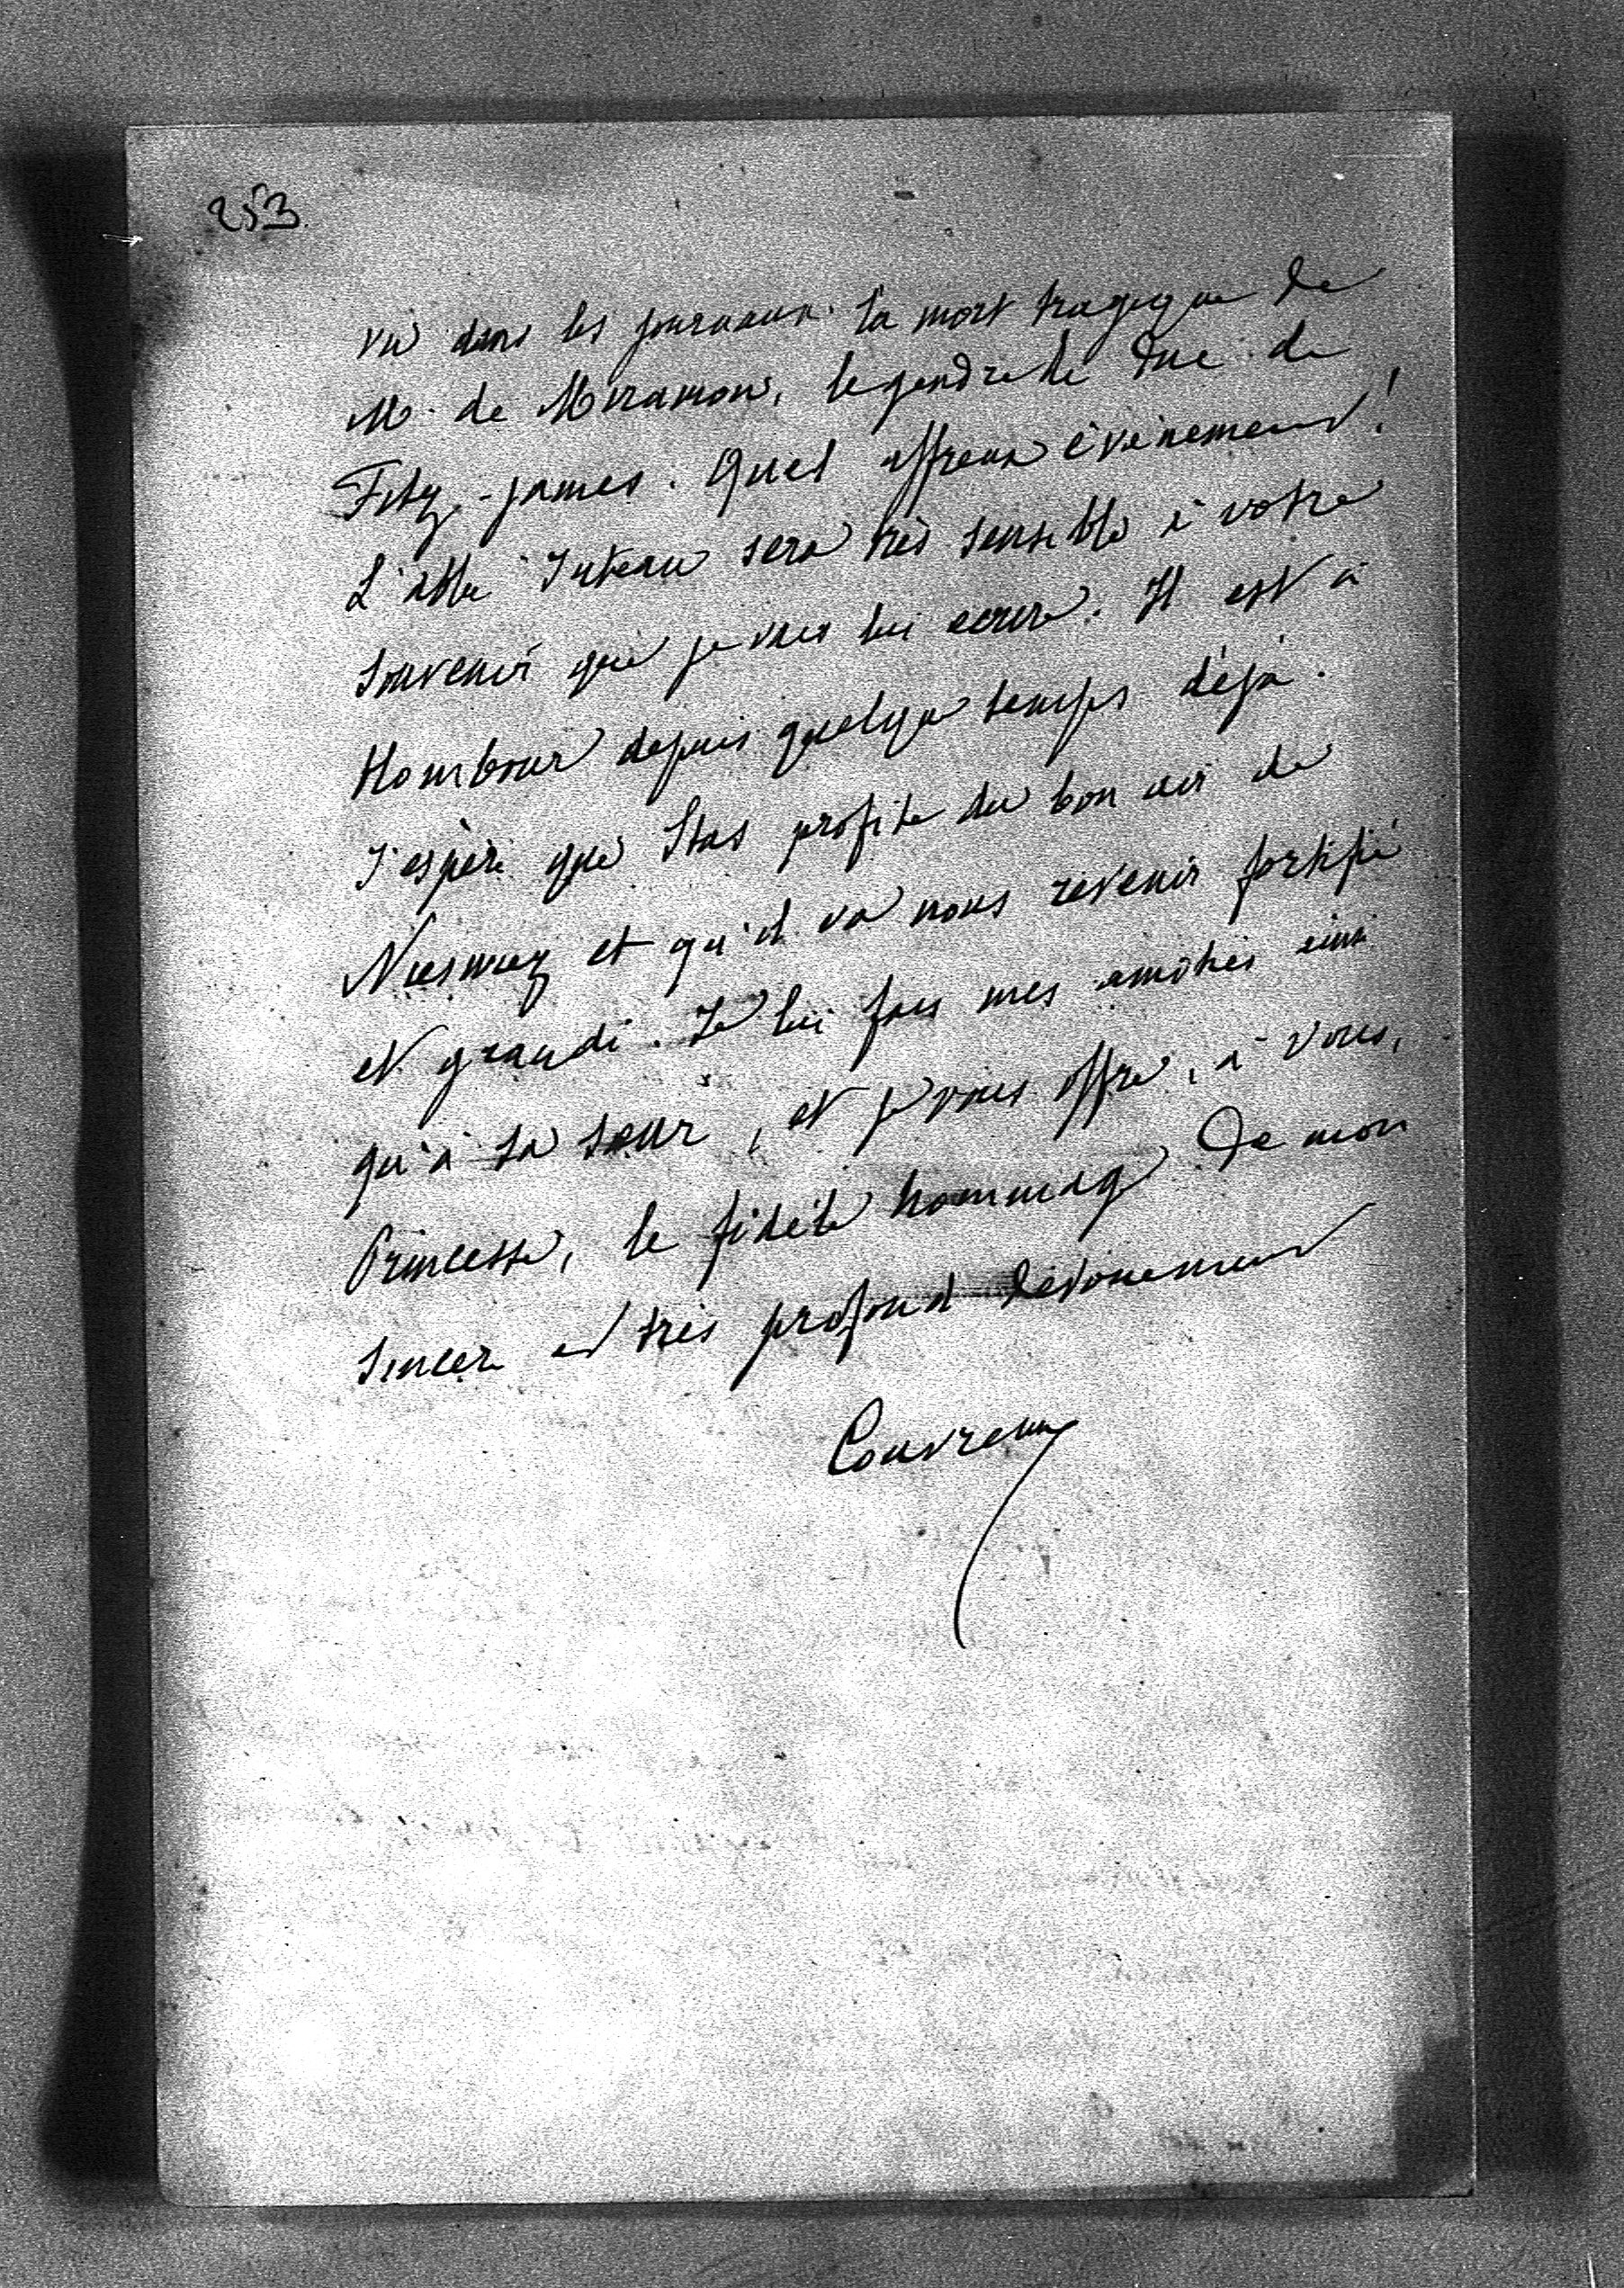 253.
vu dans les journaux la mort tragique de
M. de Miramon, le gendre de Duc de
Fitz-james. Quel affreux évènement!
L'abbé Juteau sera très sensible à votre
souvenir que je vais lui écrire. Il est à
Hombour depuis quelque temps déjà.
J'espère que Stas profite du bon air de
et qu'il va nous revenir fortifié
et grandi. Je lui fais mes amitiés ainsi
qu'à sa sœur, et je vous offre, à vous,
Princesse, le fidèle hommage de mon
sincère et très profond dévouement
Couvreux